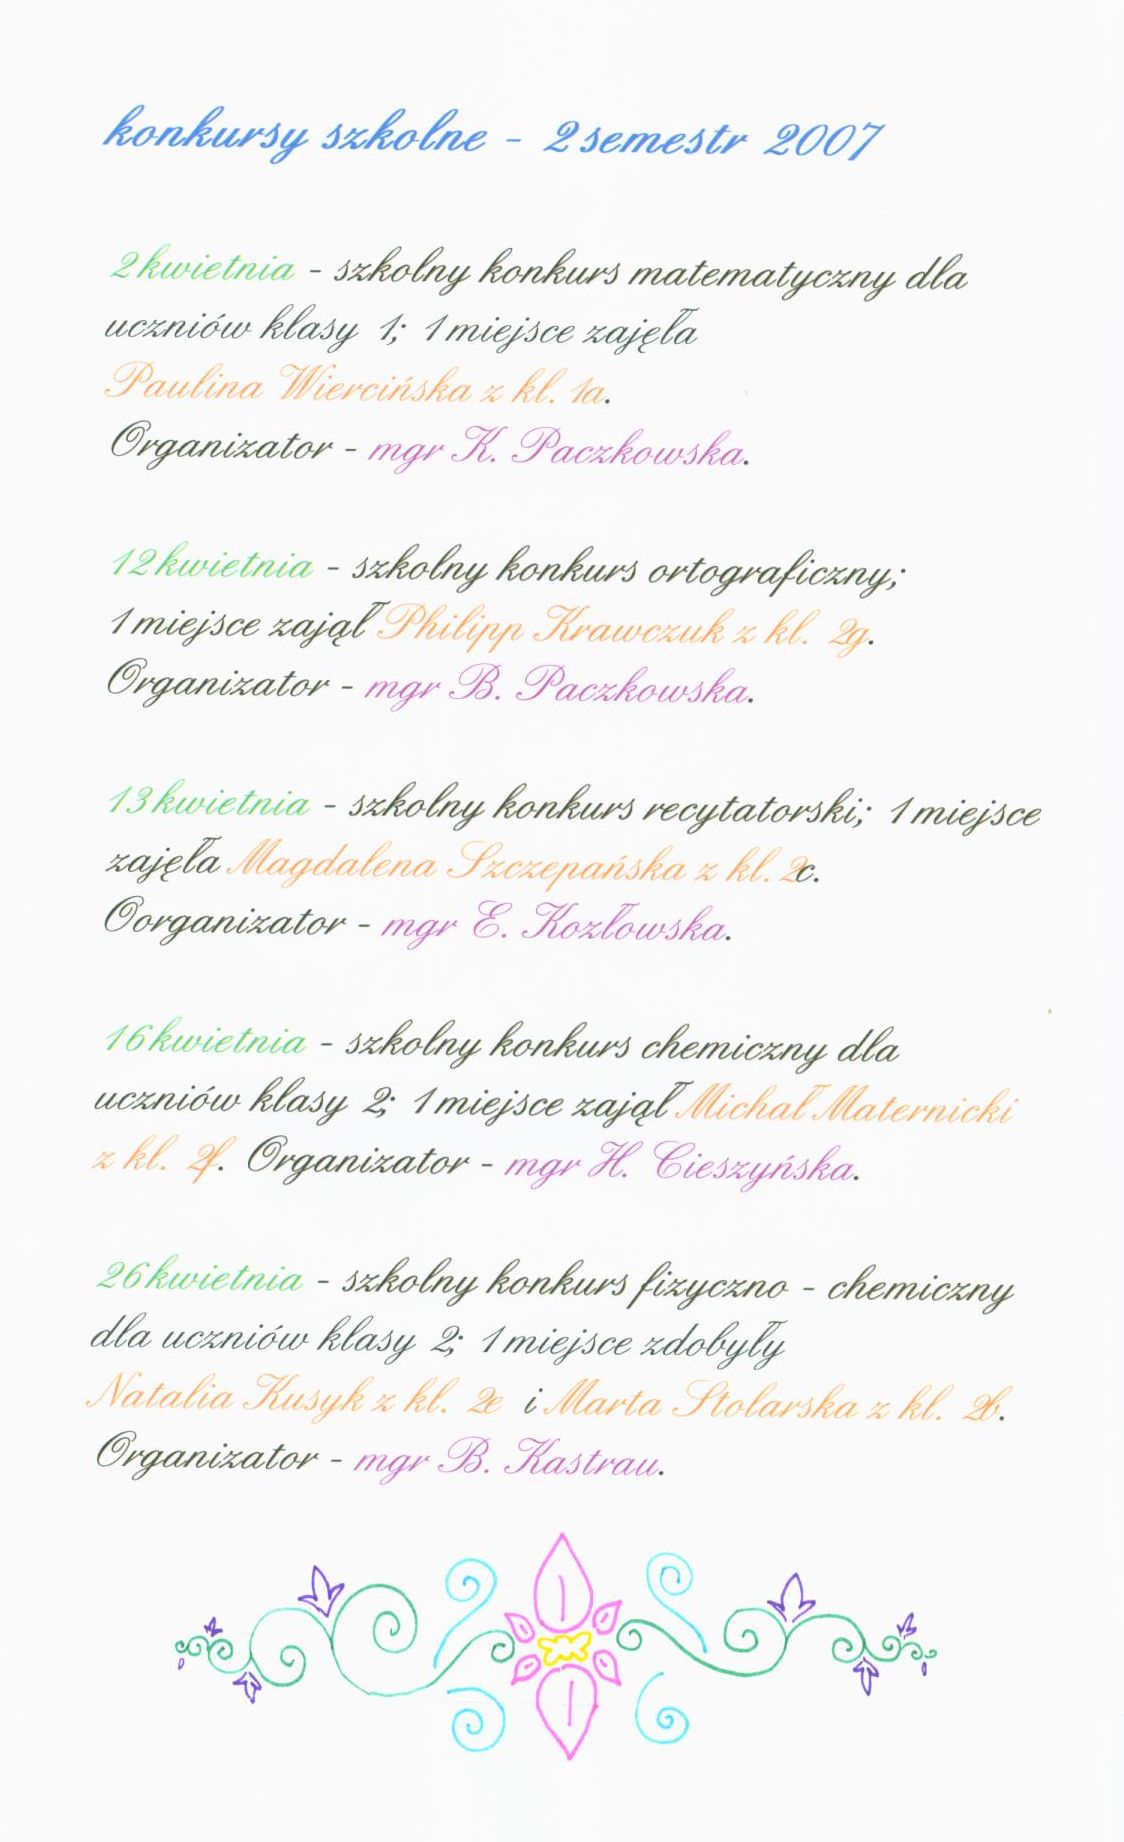 konkursy szkolne - 2 semestr 2007
2 kwietnia - szkolny konkurs matematyczny dla
uczniów klasy 1; 1 miejsce zajęła
Paulina Wiercińska z kl. 1a.
Organizator - mgr K. Paczkowska.
12 kwietnia - szkolny konkurs ortograficzny;
1 miejsce zajął Philipp Krawczuk z kl. 2g.
Organizator - mgr B. Paczkowska.
13 kwietnia - szkolny konkurs recytatorski; 1 miejsce
zajęła Magdalena Szczepańska z kl. 2c.
Oorganizator - mgr E. Kozłowska.
16 kwietnia - szkolny konkurs chemiczny dla
uczniów klasy 2; 1 miejsce zajął Michał Maternicki
z kl. 2f. Organizator - mgr H. Cieszyńska.
26 kwietnia - szkolny konkurs fizyczno - chemiczny
dla uczniów klasy 2; 1 miejsce zdobyły
Natalia Kusyk z kl. 2e i Marta Stolarska z kl. 2b.
Organizator - mgr B. Kastrau.